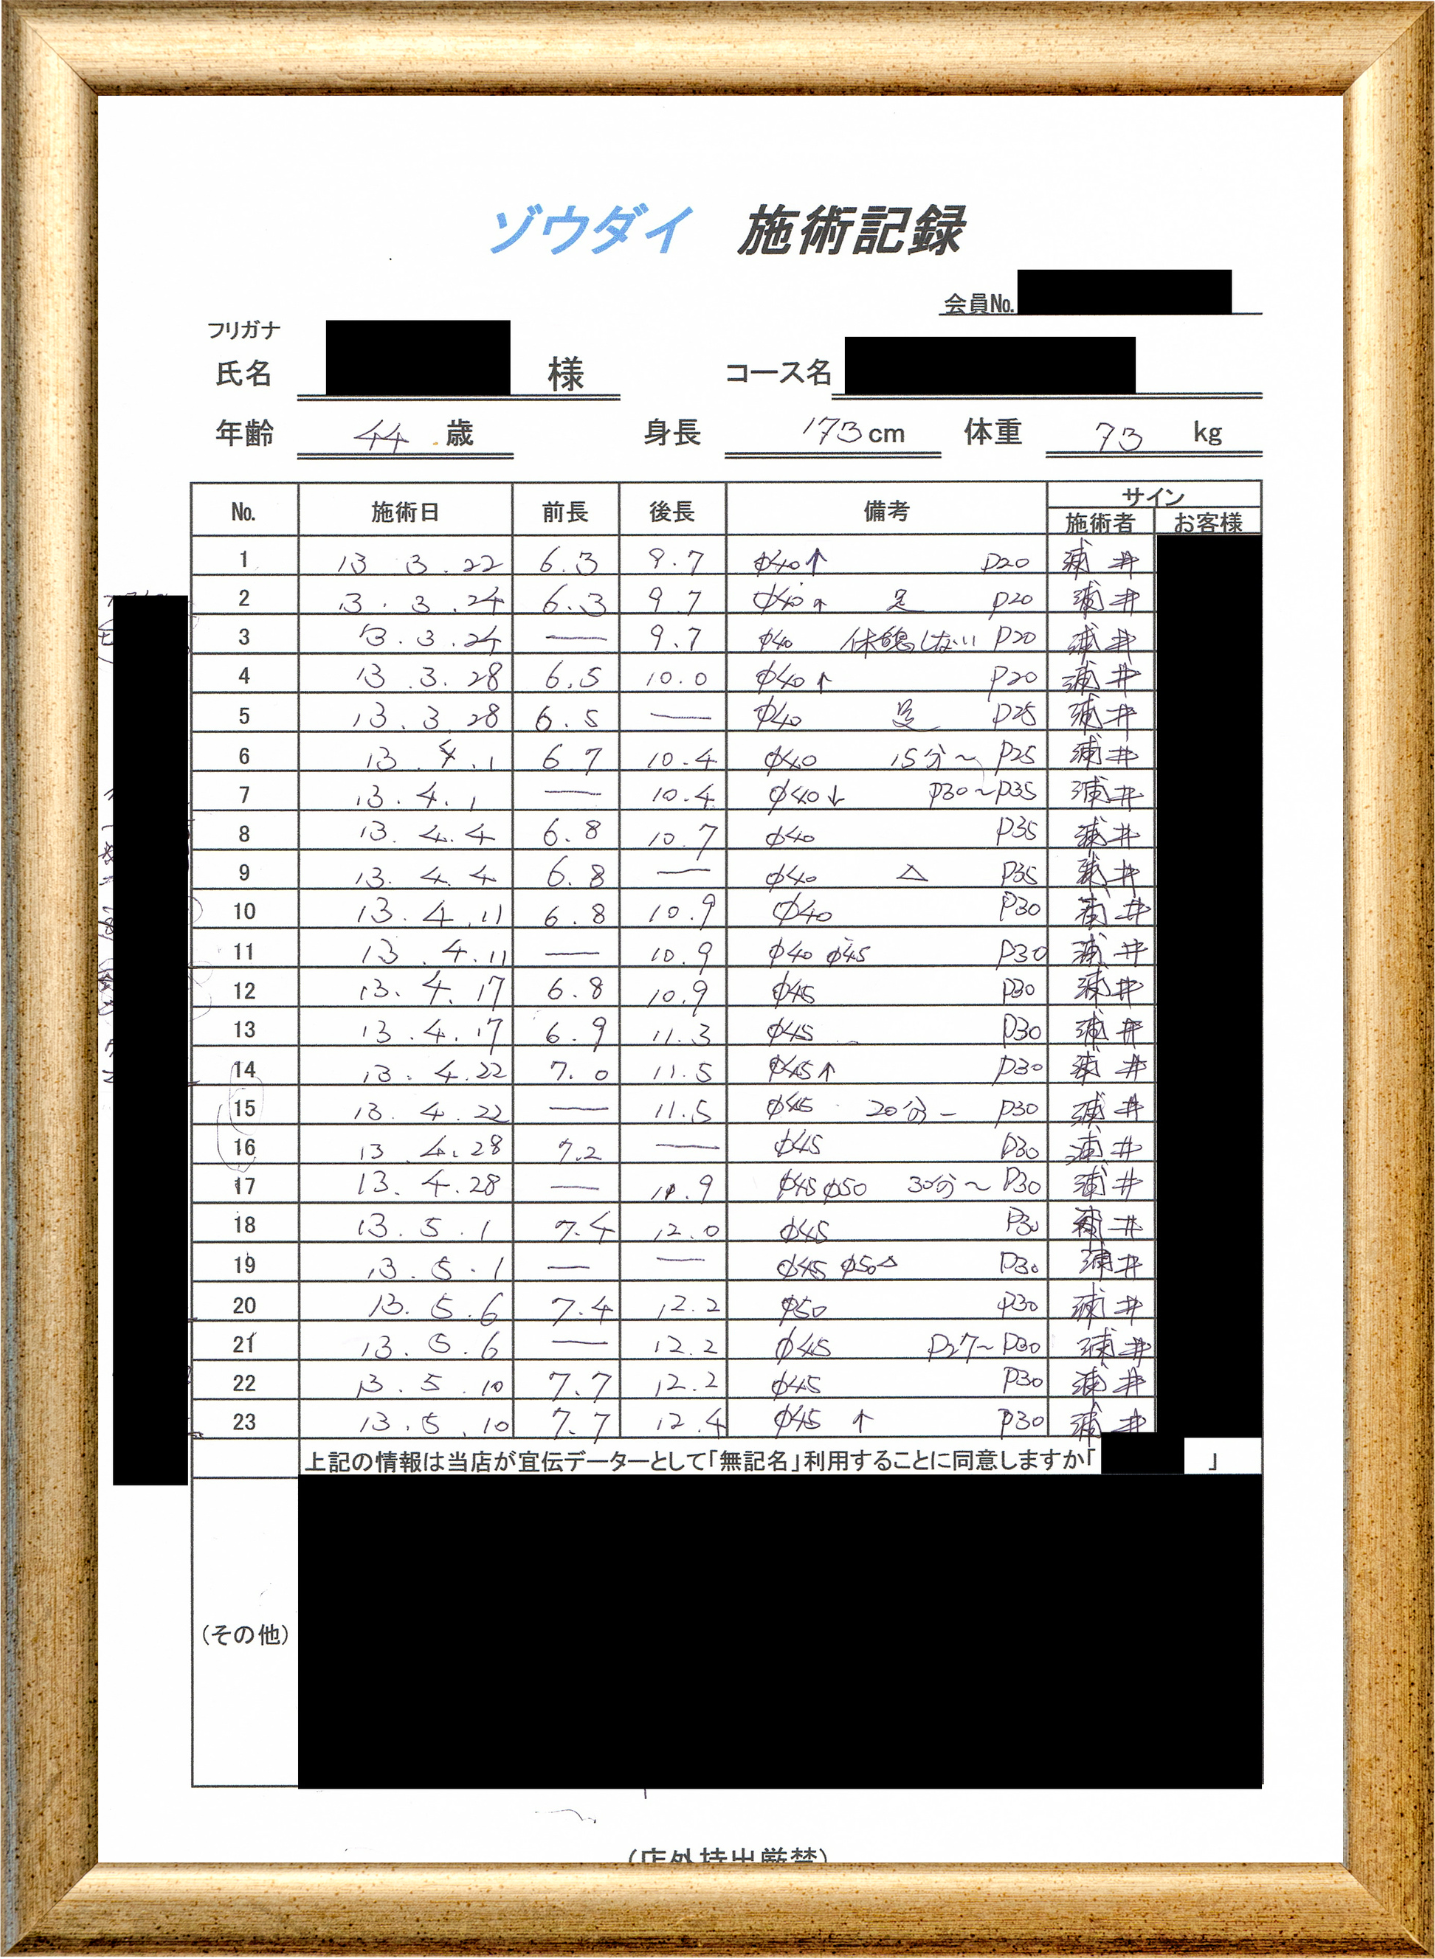 ゾウダイ 施術記録
会員No.
フリガナ
氏名 様 コース名
年齢 44 歳 身長 173 cm 体重 73 kg
No. 施術日 前長 後長 備考 サイン
施術者 お客様
1 13 3.22 6.3 9.7 φ40↑ P20 浦井
2 13.3.24 6.3 9.7 φ40↑ 足 P20 浦井
3 13.3.24 — 9.7 φ40 休憩しない P20 浦井
4 13.3.28 6.5 10.0 φ40↑ P20 浦井
5 13.3 28 6.5 — φ40 足 P25 浦井
6 13.4.1 6.7 10.4 φ40 15分〜 P25 浦井
7 13.4.1 — 10.4 φ40↓ P30〜P35 浦井
8 13.4.4 6.8 10.7 φ40 P35 浦井
9 13.4.4 6.8 — φ40 △ P35 浦井
10 13.4.11 6.8 10.9 φ40 P30 浦井
11 13.4.11 — 10.9 φ40 φ45 P30 浦井
12 13.4.17 6.8 10.9 φ45 P30 浦井
13 13.4.17 6.9 11.3 φ45 P30 浦井
14 13.4.22 7.0 11.5 φ45↑ P30 浦井
15 13.4.22 — 11.5 φ45 20分〜 P30 浦井
16 13.4.28 7.2 — φ45 P30 浦井
17 13.4.28 — 11.9 φ45φ50 30分〜 P30 浦井
18 13.5.1 7.4 12.0 φ45 P30 浦井
19 13.5.1 — — φ45 φ50△ P30 浦井
20 13.5.6 7.4 12.2 φ50 P30 浦井
21 13.5.6 — 12.2 φ45 P27〜P30 浦井
22 13.5.10 7.7 12.2 φ45 P30 浦井
23 13.5.10 7.7 12.4 φ45 ↑ P30 浦井
上記の情報は当店が宣伝データーとして「無記名」利用することに同意しますか「 」
(その他)
(店外持出厳禁)